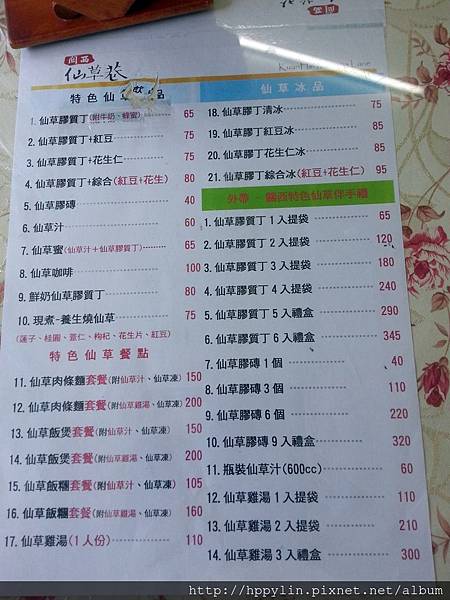 關西
仙草巷
特色仙草飲品
1. 仙草膠質丁(附牛奶、蜂蜜) 65
2. 仙草膠質丁+紅豆 75
3. 仙草膠質丁+花生仁 75
4. 仙草膠質丁+綜合(紅豆+花生) 80
5. 仙草膠磚 40
6. 仙草汁 60
7. 仙草蜜(仙草汁+仙草膠質丁) 65
8. 仙草咖啡 100
9. 鮮奶仙草膠質丁 80
10. 現煮-養生燒仙草 75
(蓮子、桂圓、薏仁、枸杞、花生片、紅豆)
特色仙草餐點
11. 仙草肉條麵套餐(附仙草汁、仙草凍) 150
12. 仙草肉條麵套餐(附仙草雞湯、仙草凍) 200
13. 仙草飯煲套餐(附仙草汁、仙草凍) 150
14. 仙草飯煲套餐(附仙草雞湯、仙草凍) 200
15. 仙草飯糰套餐(附仙草汁、仙草凍) 105
16. 仙草飯糰套餐(附仙草雞湯、仙草凍) 160
17. 仙草雞湯(1人份) 110
仙草冰品
18. 仙草膠丁清冰 75
19. 仙草膠丁紅豆冰 85
20. 仙草膠丁花生仁冰 85
21. 仙草膠丁綜合冰(紅豆+花生) 95
外帶 - 關西特色仙草伴手禮
1. 仙草膠質丁 1 入提袋 65
2. 仙草膠質丁 2 入提袋 120
3. 仙草膠質丁 3 入提袋 180
4. 仙草膠質丁 4 入提袋 240
5. 仙草膠質丁 5 入禮盒 290
6. 仙草膠質丁 6 入禮盒 345
7. 仙草膠磚 1 個 40
8. 仙草膠磚 3 個 110
9. 仙草膠磚 6 個 220
10. 仙草膠磚 9 入禮盒 320
11. 瓶裝仙草汁(600cc) 60
12. 仙草雞湯 1 入提袋 110
13. 仙草雞湯 2 入提袋 210
14. 仙草雞湯 3 入禮盒 300
http://hppylin.pixnet.net/album